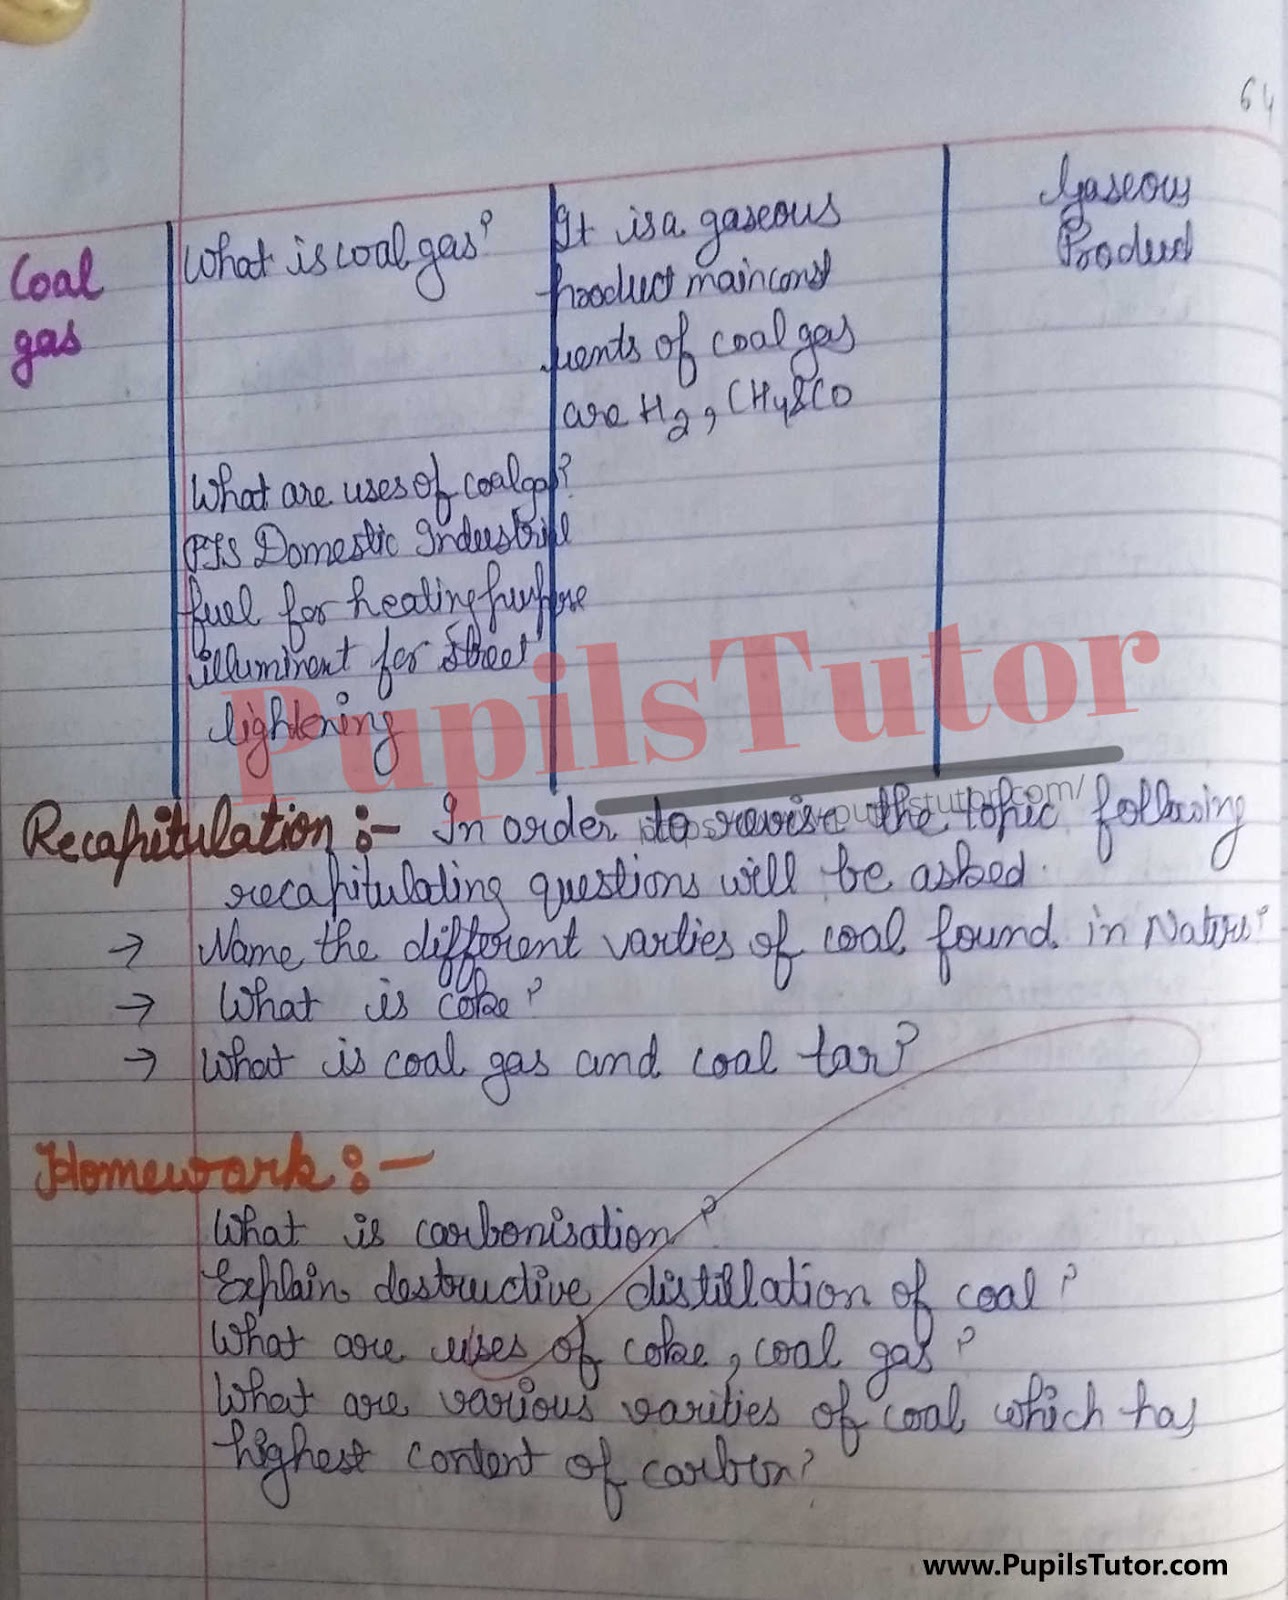 64
Coal
gas
What is coal gas?
It is a gaseous
product main const
uents of coal gas
are H2, CH4 & CO
Gaseous
Product
What are uses of coal gas?
PTS Domestic Industrial
fuel for heating purpose
illuminent for street
lightening
PupilsTutor
Recapitulation :- In order to revise the topic following
recapitulating questions will be asked.
→ Name the different varties of coal found in Nature?
→ What is coke?
→ What is coal gas and coal tar?
Homework :-
What is carbonisation?
Explain destructive distillation of coal?
What are uses of coke, coal gas?
What are various varities of coal which has
highest content of carbon?
www.PupilsTutor.com